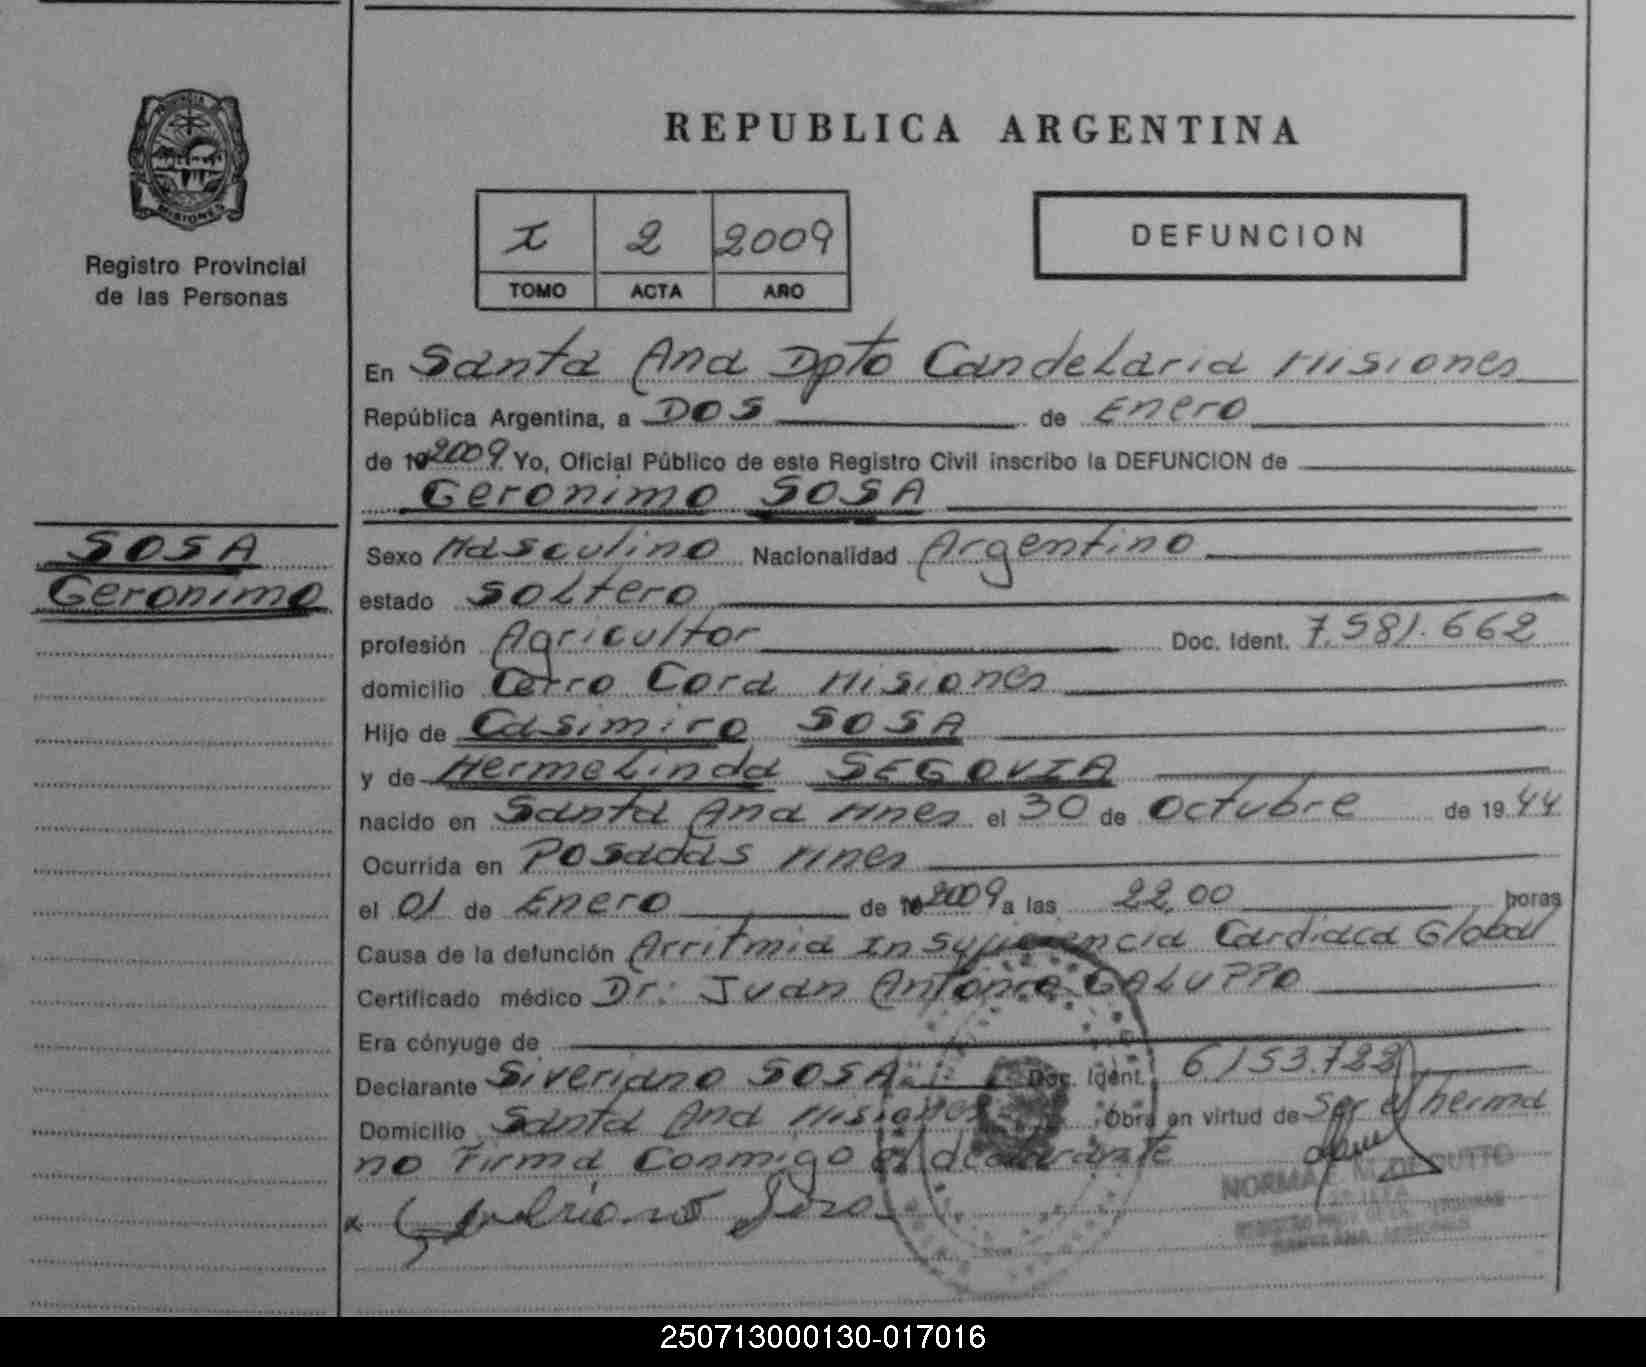 PROVINCIA DE
MISIONES
Registro Provincial
de las Personas
REPUBLICA ARGENTINA
I 2 2009
TOMO ACTA AÑO
DEFUNCION
En Santa Ana Dpto Candelaria Misiones
República Argentina, a DOS de Enero
de 19 2009. Yo, Oficial Público de este Registro Civil inscribo la DEFUNCION de
Geronimo SOSA
SOSA
Geronimo
Sexo Masculino Nacionalidad Argentino
estado Soltero
profesión Agricultor Doc. Ident. 7.581.662
domicilio Cerro Cora Misiones
Hijo de Casimiro SOSA
y de Hermelinda SEGOVIA
nacido en Santa Ana Mnes el 30 de Octubre de 19 44
Ocurrida en Posadas Mnes
el 01 de Enero de 19 2009 a las 22,00 horas
Causa de la defunción Arritmia Insuficiencia Cardiaca Global
Certificado médico Dr: Juan Antonio GALUPPO
Era cónyuge de
Declarante Siveriano SOSA Doc. Ident. 6153.722
Domicilio Santa Ana Misiones Obra en virtud de Ser el herma
no Firma Conmigo el declarante
x Sosa
NORMA
250713000130-017016